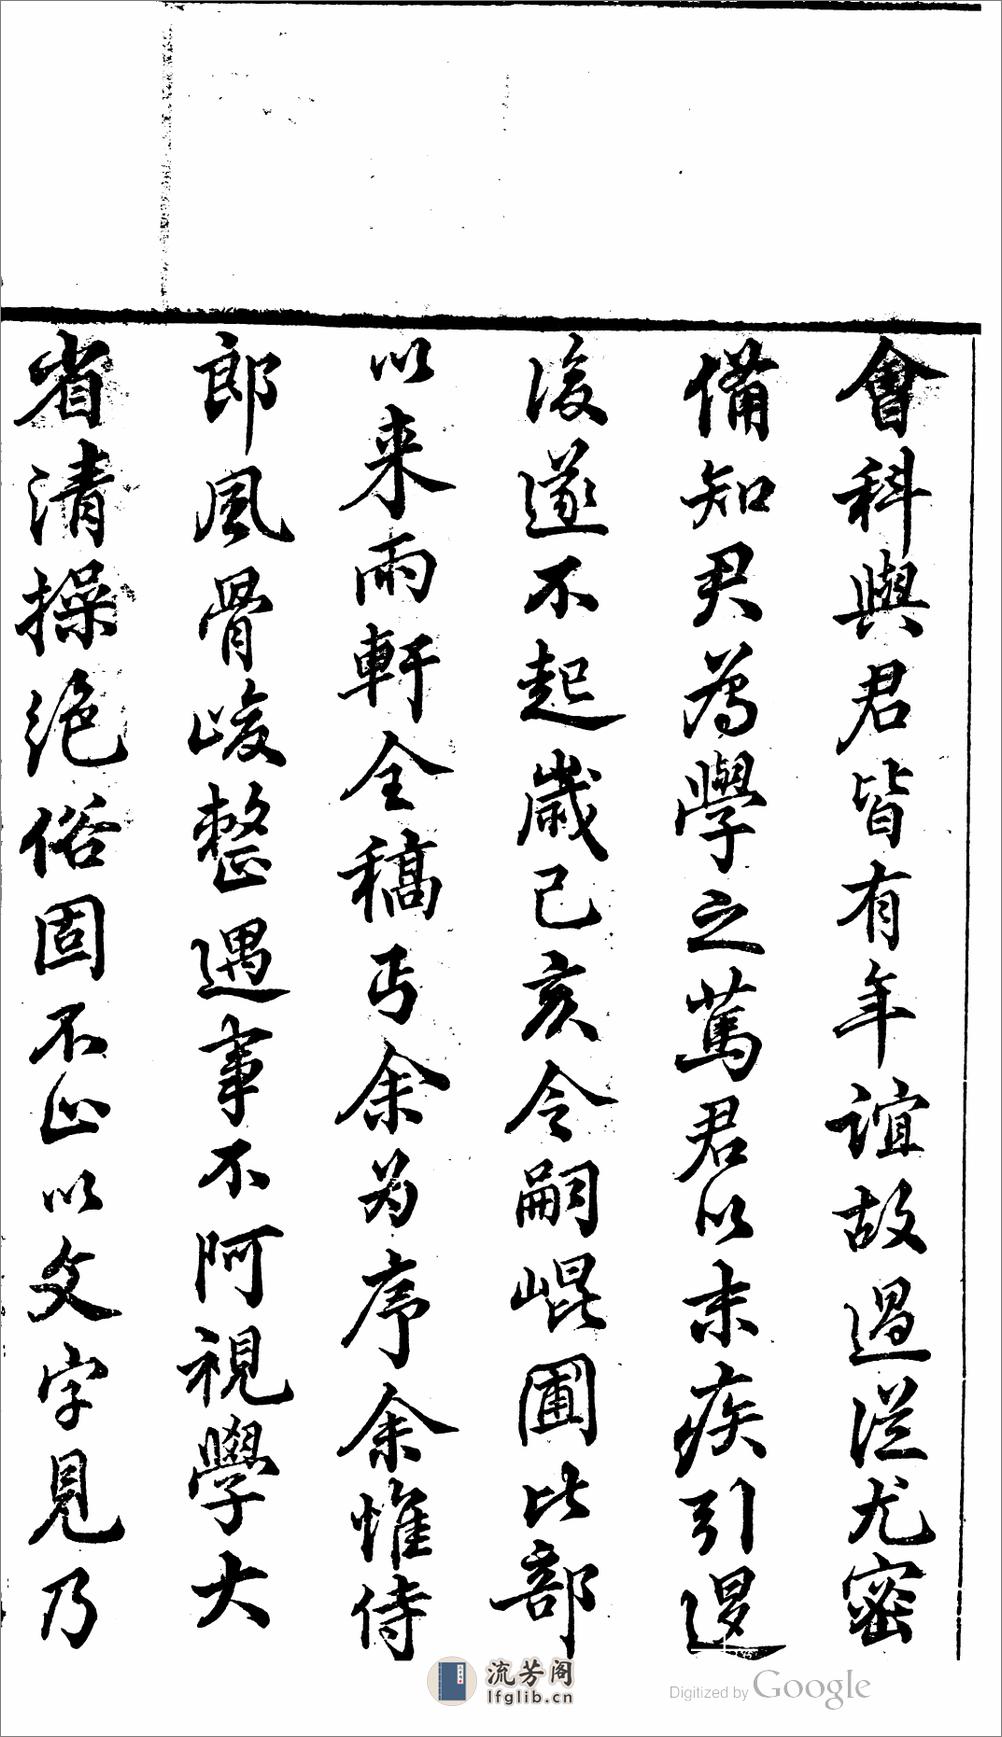 會科與君皆有年誼故過從尤密
備知君為學之篤君以末疾引退
後遂不起歲己亥令嗣崐圃比部
以來雨軒全稿丐余为序余惟侍
郎風骨峻整遇事不阿視學大
省清操絶俗固不止以文字見乃
流芳阁
lfglib.cn
Digitized by Google